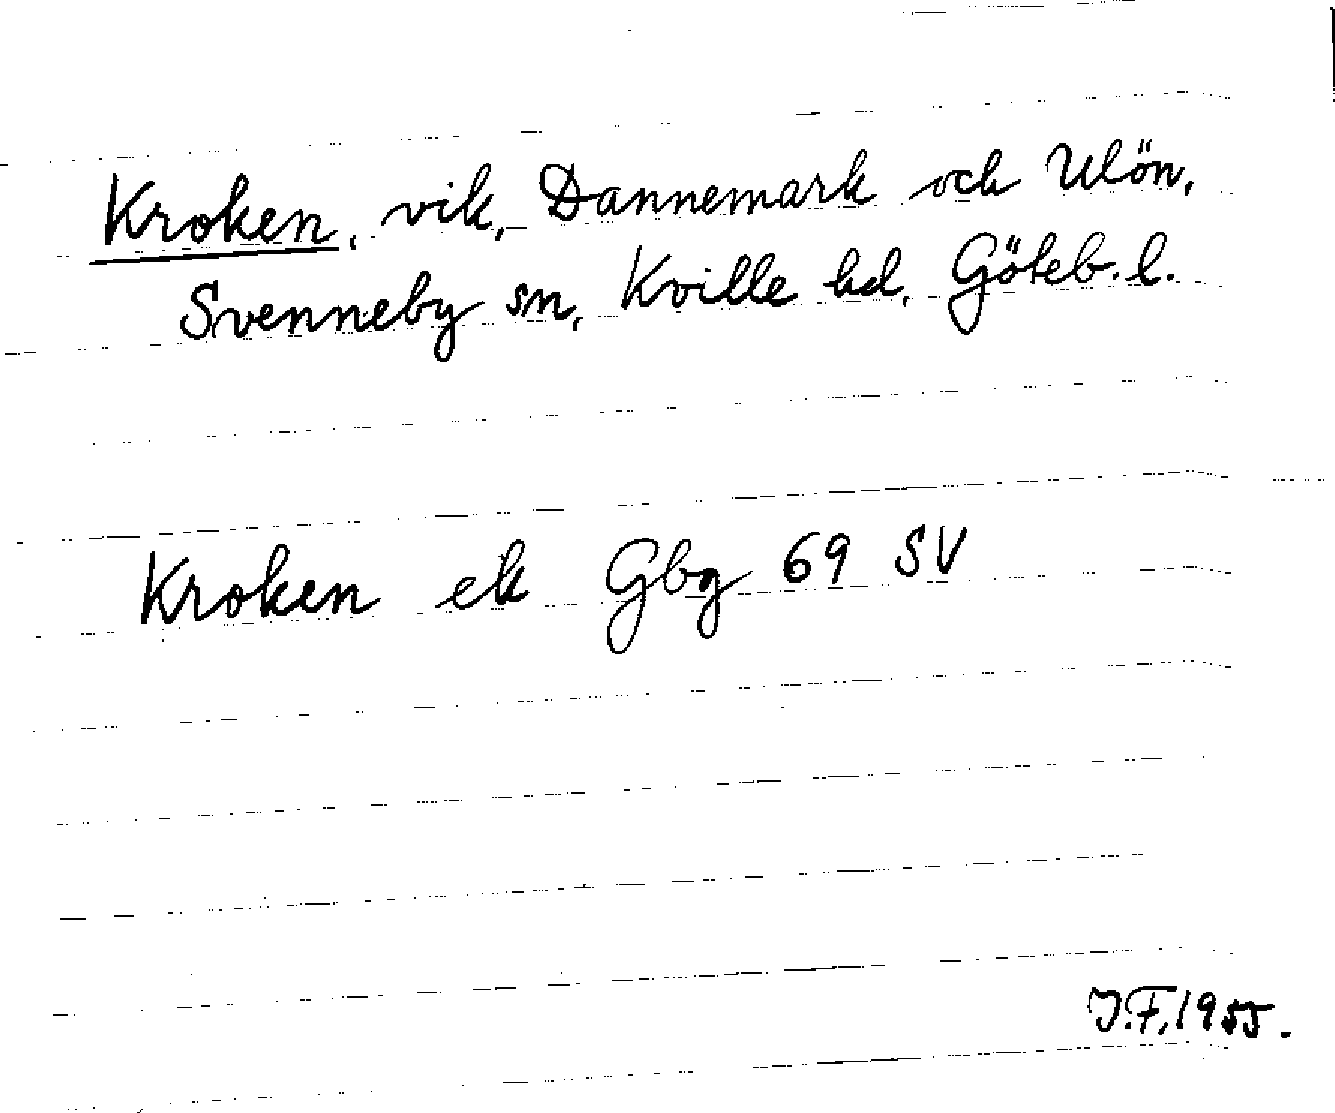 Kroken, vik, Dannemark och Ulön,
Svenneby sn, Kville hd, Göteb. l.
Kroken ek Gbg 69 SV
J.F. 1955.